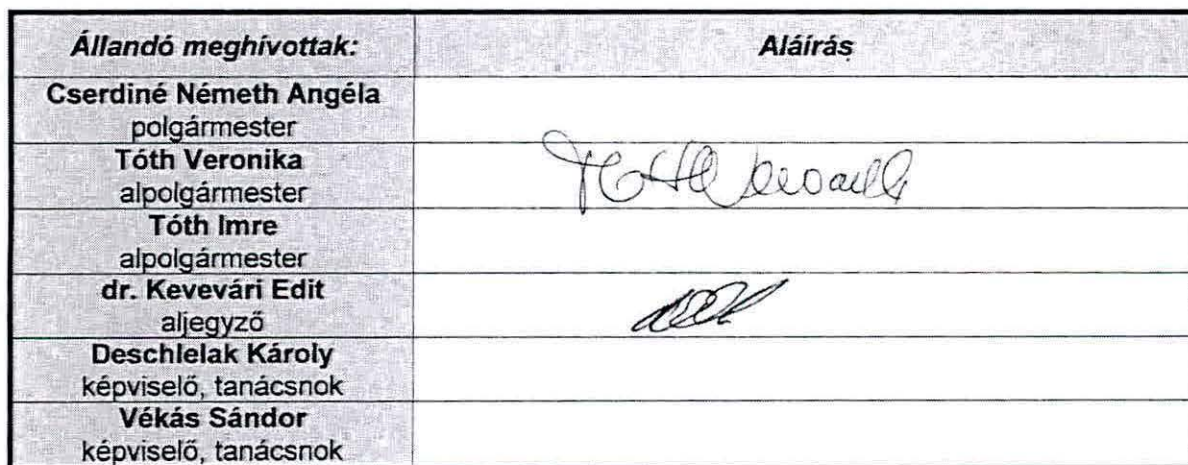 Állandó meghívottak: Aláírás
Cserdiné Németh Angéla
polgármester
Tóth Veronika
alpolgármester
Tóth Veronika
Tóth Imre
alpolgármester
dr. Kevevári Edit
aljegyző
Deschlelak Károly
képviselő, tanácsnok
Vékás Sándor
képviselő, tanácsnok